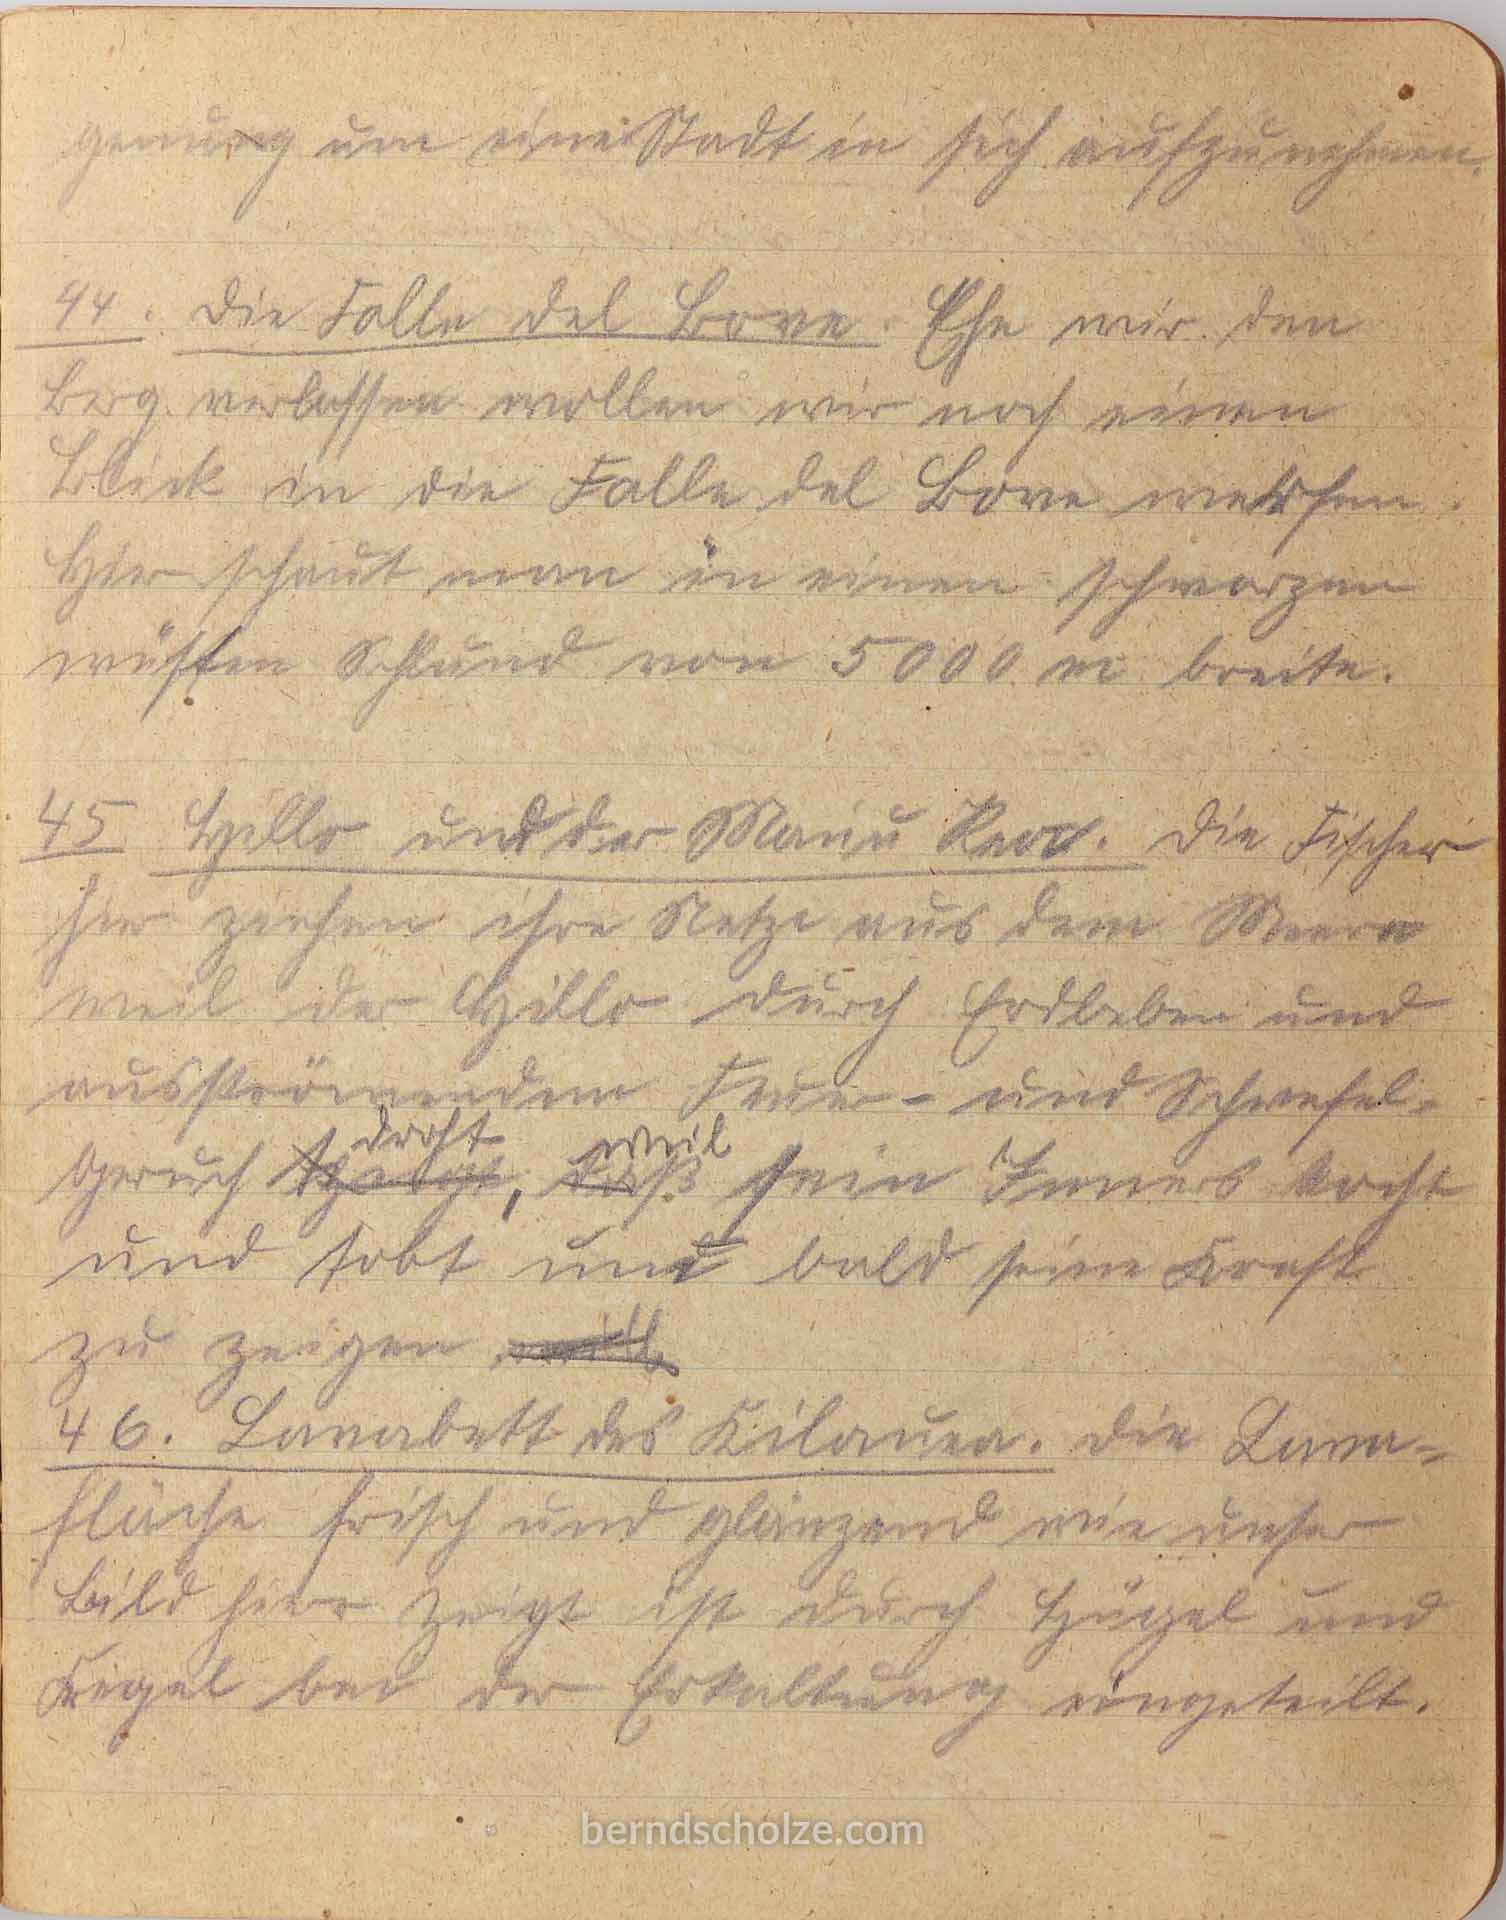 genung um eine Stadt in sich aufzunehmen.
44. Die Falle del Bove. Ehe wir den
Berg verlassen wollen wir noch einen
Blick in die Falle del Bove werfen.
Hier schaut man in einen schwarzen
wüsten Schlund von 5000 m breite.
45 Hillo und der Mauu Keou. Die Fischer
hier ziehen ihre Netze aus dem Meere
weil der Hillo durch Erdbeben und
ausströmendem Feuer- und Schwefel-
geruch droht, weil sein Inneres kocht
und tobt und bald seine Kraft
zu zeigen will
46. Lavabett des Kilauea. Die Lava-
fläche frisch und glänzend wie unser
Bild hier zeigt ist durch Hügel und
Kegel bei der Erkaltung eingeteilt.
berndscholze.com